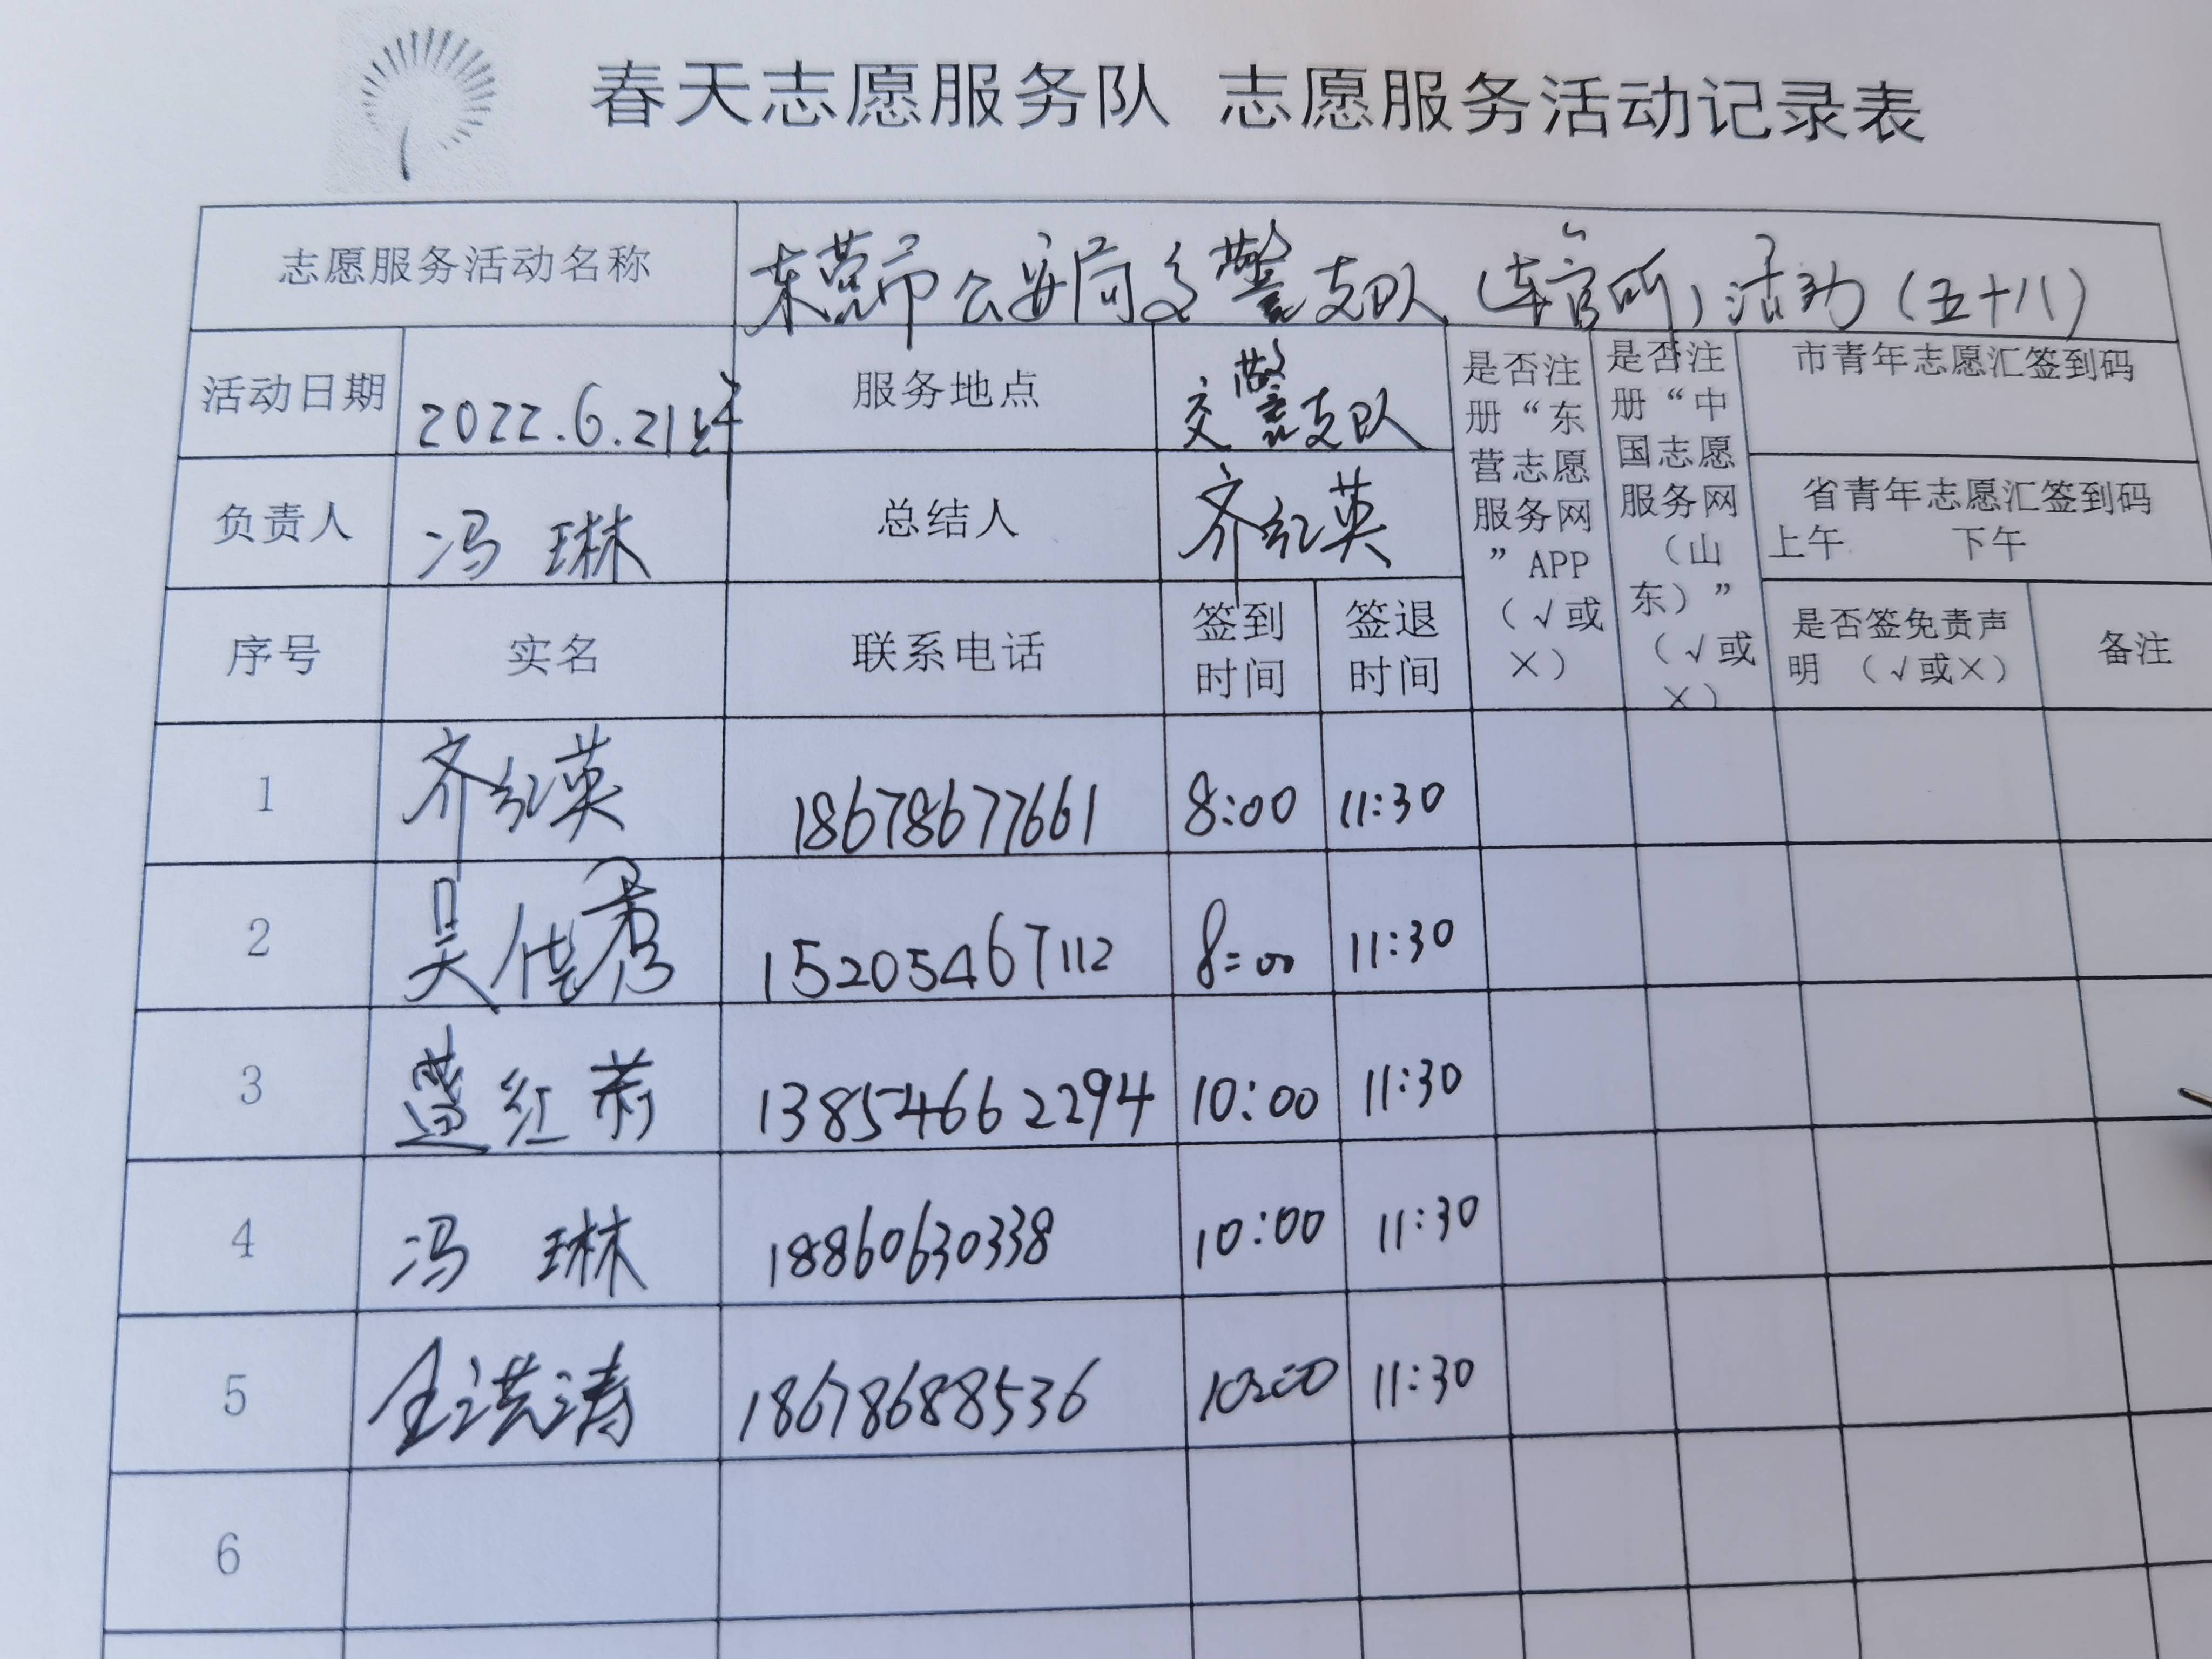 春天志愿服务队 志愿服务活动记录表
志愿服务活动名称 东营市公安局交警支队（车管所）活动（五十八）
活动日期 2022.6.21上午 服务地点 交警支队
是否注册“东营志愿服务网”APP（√或×）
是否注册“中国志愿服务网（山东）”（√或×）
市青年志愿汇签到码
负责人 冯琳 总结人 齐红英
省青年志愿汇签到码
上午 下午
序号 实名 联系电话 签到时间 签退时间 是否签免责声明 （√或×） 备注
1 齐红英 18678677661 8:00 11:30
2 吴佳秀 15205467112 8:00 11:30
3 红莉 13854662294 10:00 11:30
4 冯琳 18860630338 10:00 11:30
5 洪涛 18678688536 10:00 11:30
6